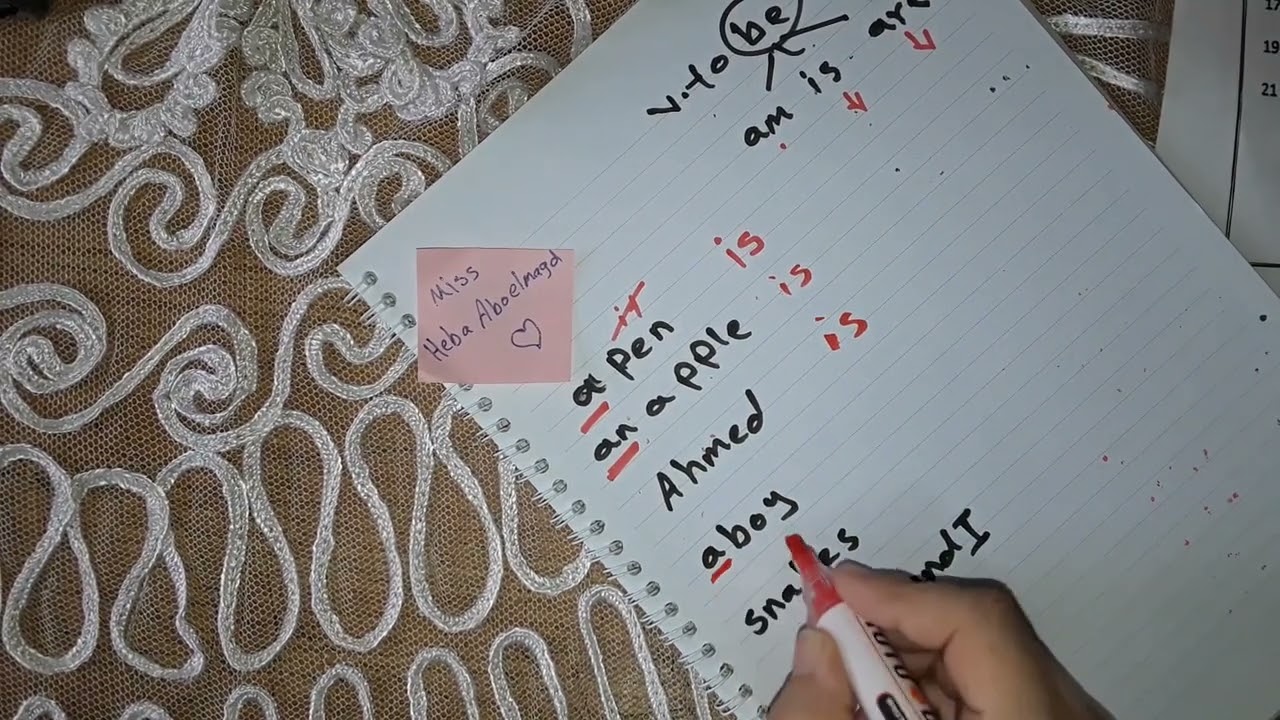 v. to be
am is are
Miss
Heba Aboelmagd
it
a pen is
an apple is
Ahmed is
a boy
and I
17
19
21